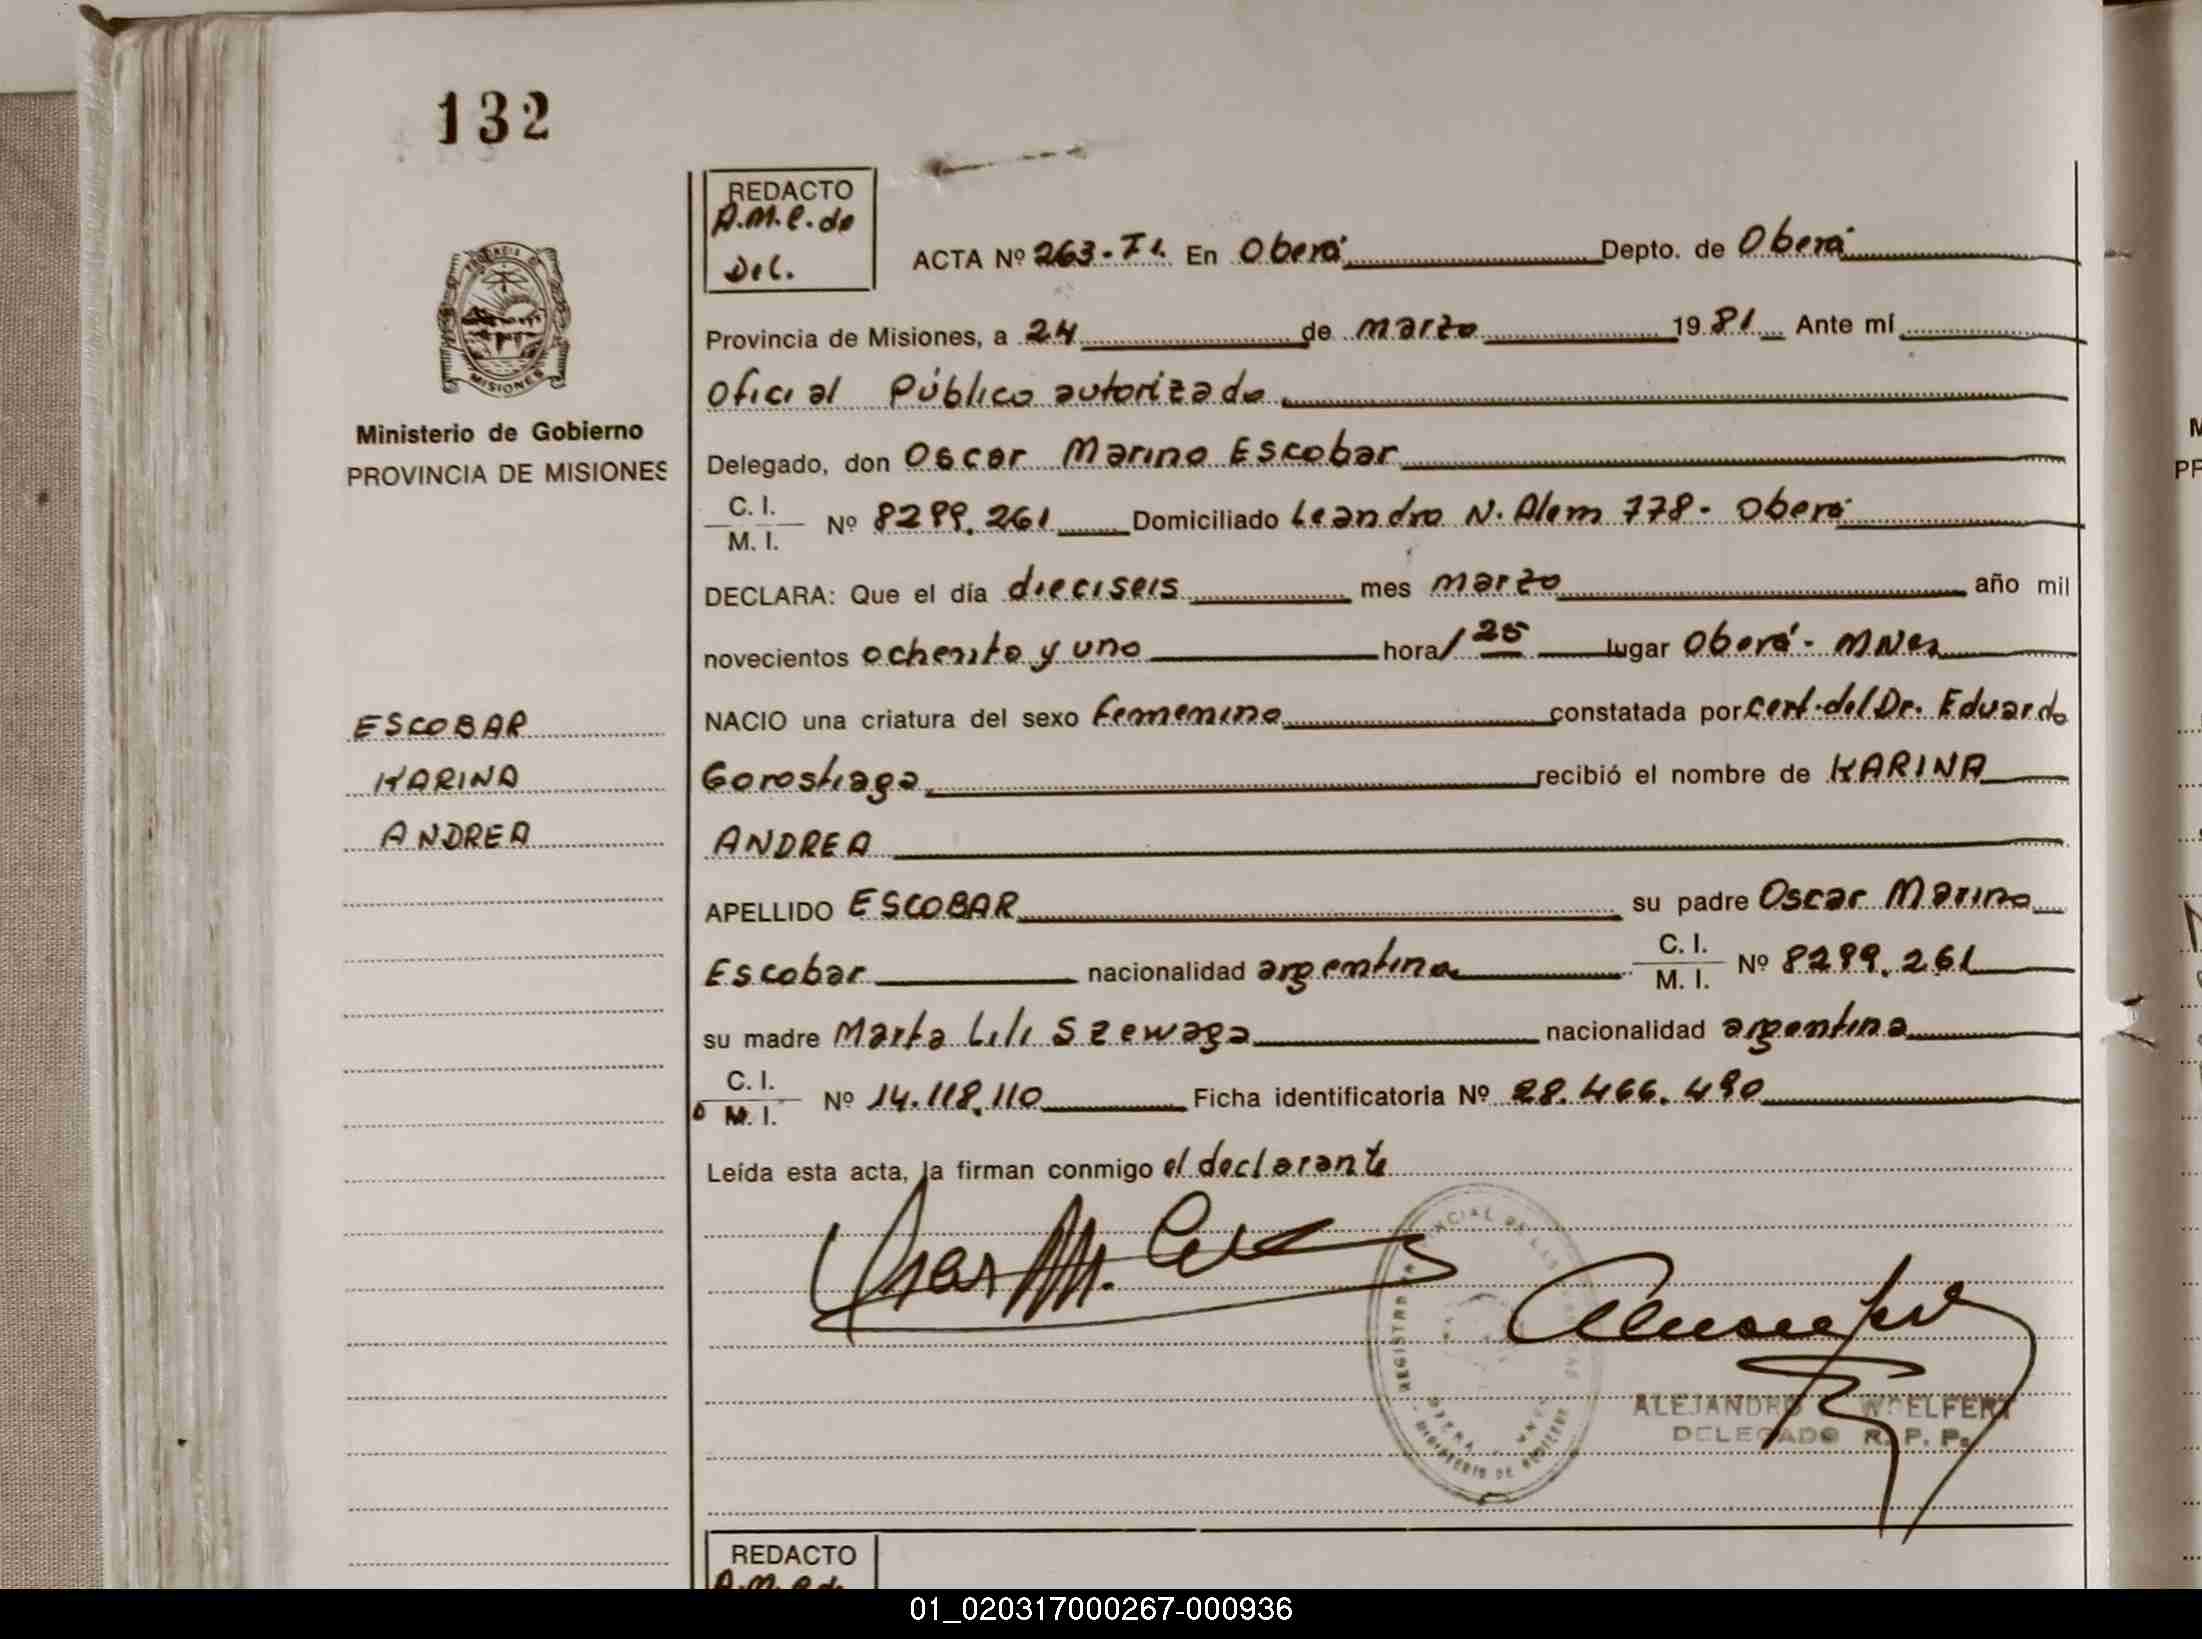 132
REDACTO
A.M.C. de
Del.
ACTA Nº 263-T1. En Oberá Depto. de Oberá
Provincia de Misiones, a 24 de marzo 1981 Ante mí
Oficial Público autorizado
Delegado, don Oscar Marino Escobar
C. I.
M. I. Nº 8299.261 Domiciliado Leandro N. Alem 778- Oberá
DECLARA: Que el día dieciseis mes marzo año mil
novecientos ochenta y uno hora 1 25 lugar Oberá- MNes
NACIO una criatura del sexo femenino constatada por cert. del Dr. Eduardo
Gorostiaga recibió el nombre de KARINA
ANDREA
APELLIDO ESCOBAR su padre Oscar Marino
Escobar nacionalidad argentina C. I. M. I. Nº 8299.261
su madre Marta Lili Szewaga nacionalidad argentina
C. I.
M. I. Nº 14.118.110 Ficha identificatoria Nº 28.466.490
Leída esta acta, la firman conmigo el declarante
PROVINCIA DE
MISIONES
Ministerio de Gobierno
PROVINCIA DE MISIONES
ESCOBAR
KARINA
ANDREA
ALEJANDRO WOELFERT
DELEGADO R. P. P.
REDACTO
01_020317000267-000936